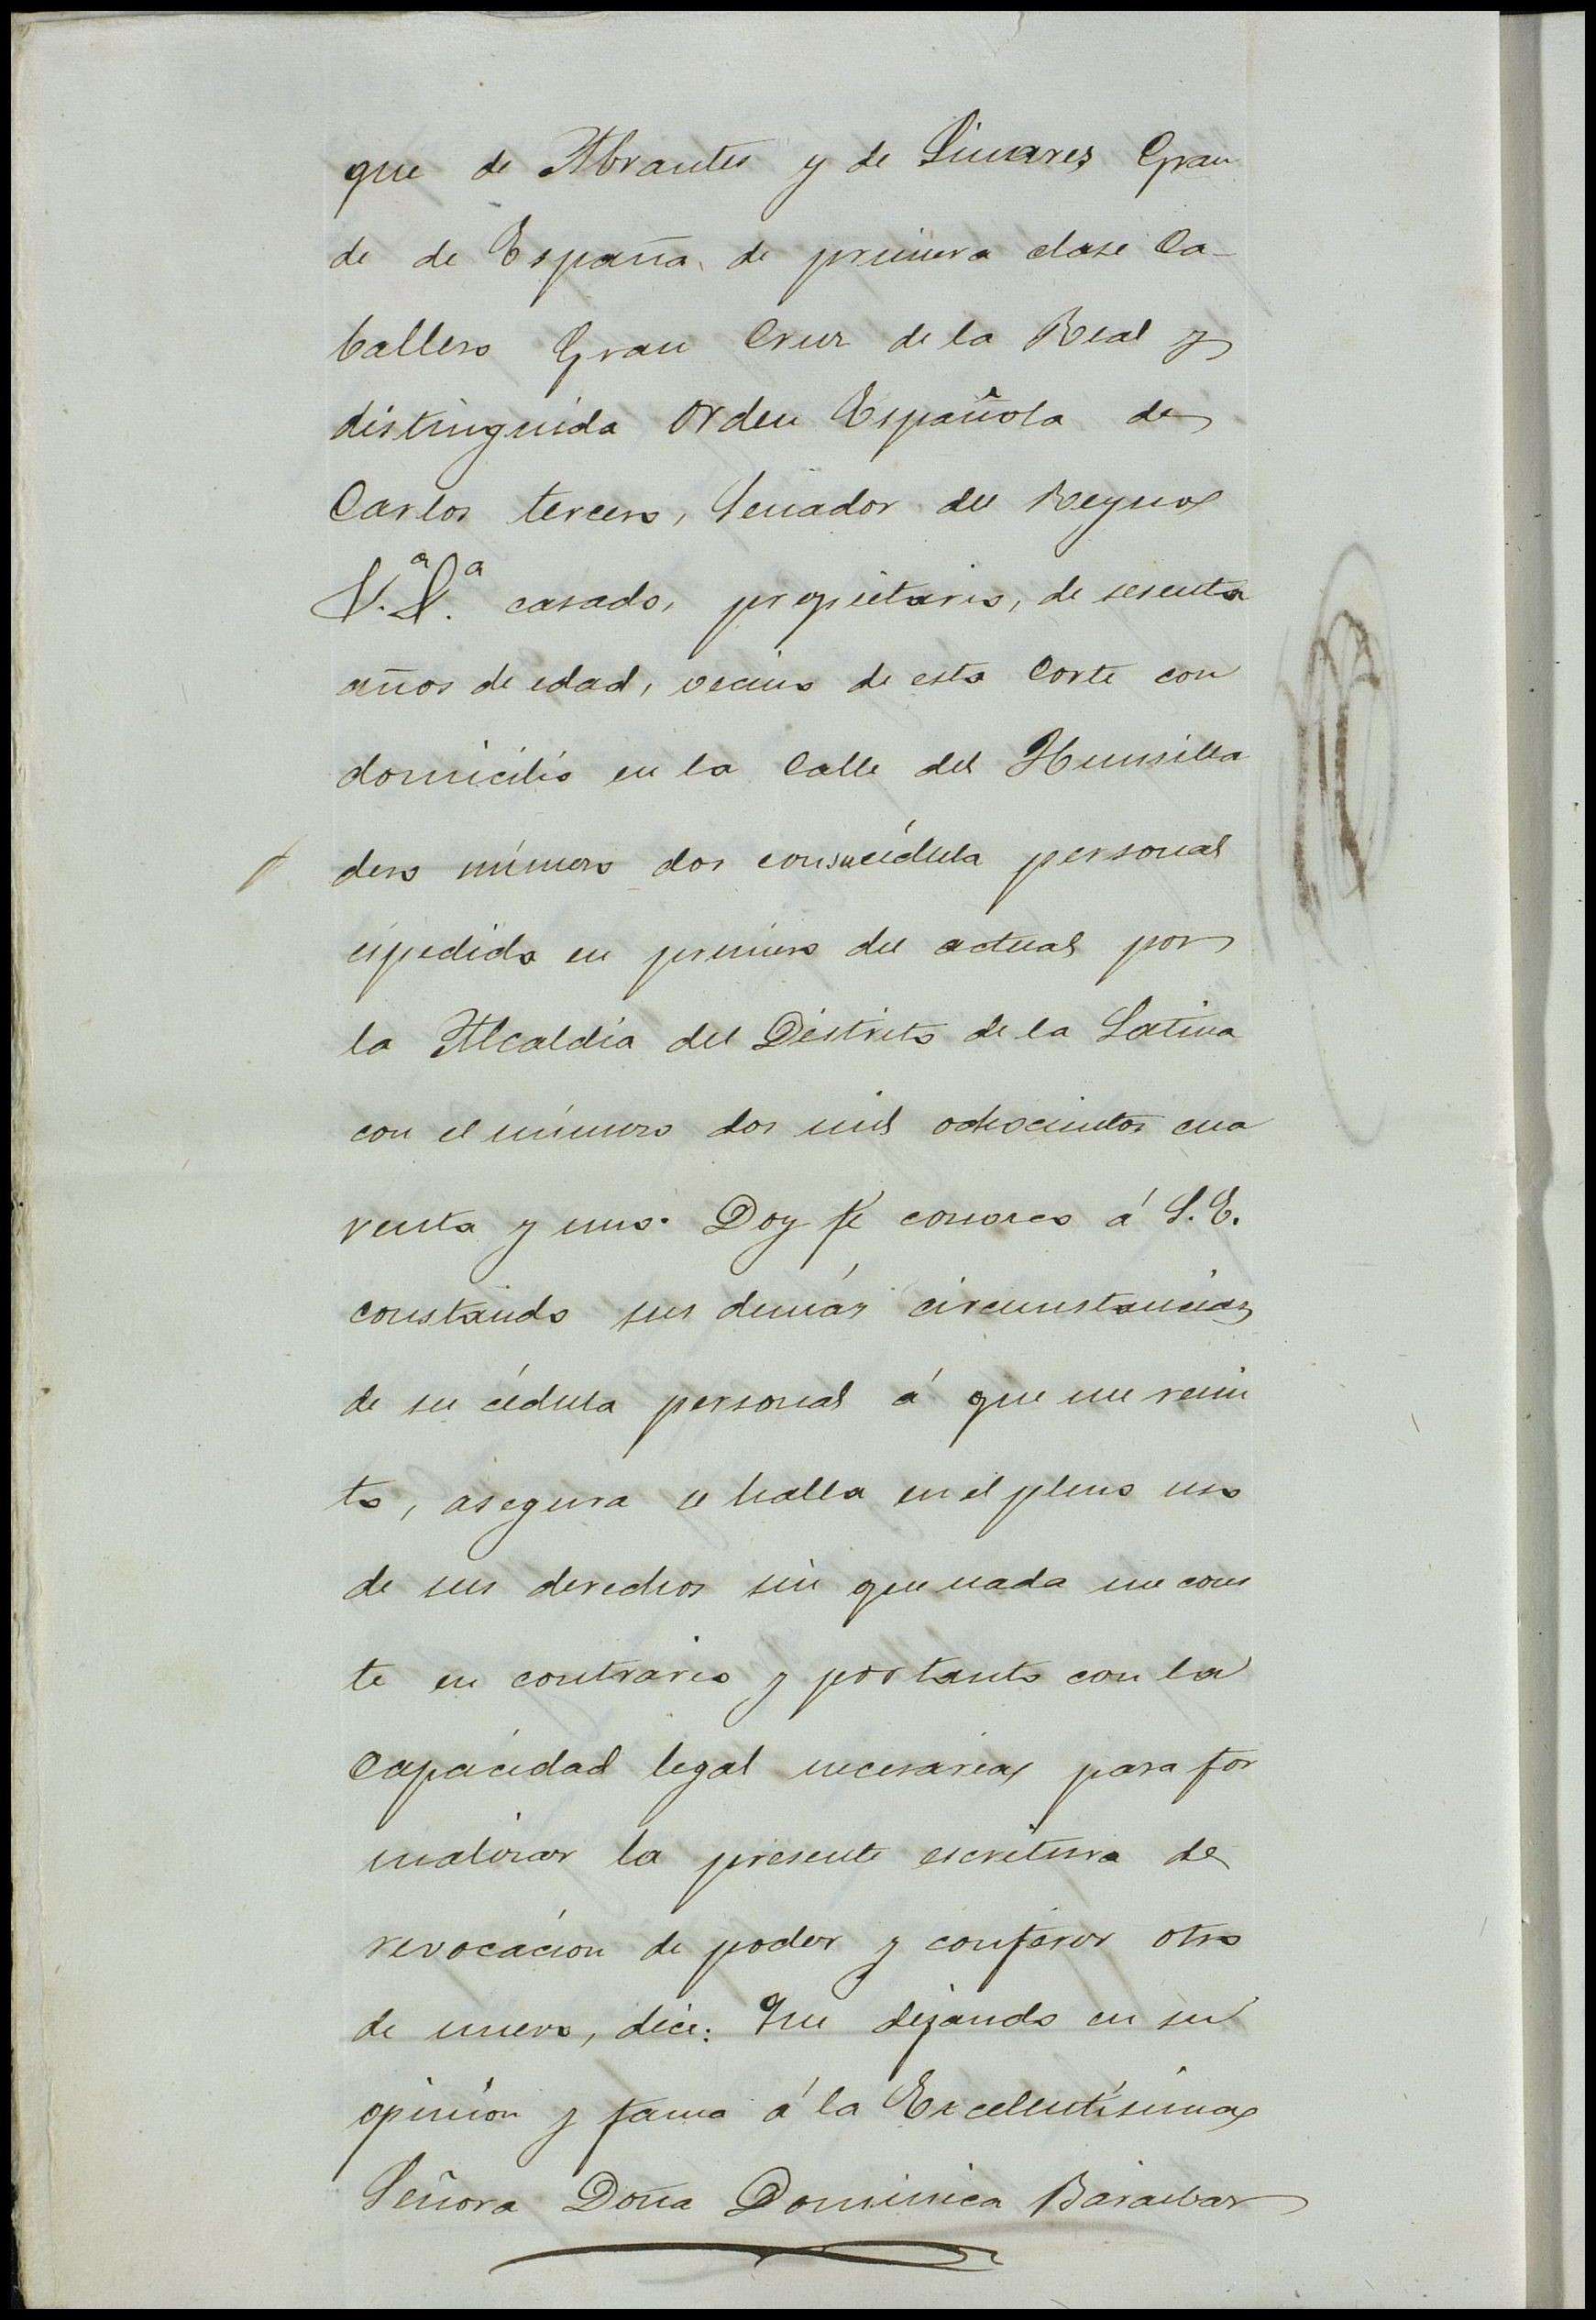 que de Abrantes y de Linares Gran
de de España de primera clase Ca-
ballero Gran Cruz de la Real y
distinguida Orden Española de
Carlos tercero, Senador del Reyno
casado, propietario, de sesenta
años de edad, vecino de esta Corte con
domicilio en la Calle del Humilla
dero número dos con su cédula personal
espedida en primero del actual por
la Alcaldia del Distrito de la Latina
con el número dos mil ochocientos cua
renta y uno. Doy fé conozco á S. E.
constando sus demás circunstancias
de su cédula personal á que me remi
to, asegura se halla en el pleno uso
de sus derechos sin que nada me cons
te en contrario y por tanto con la
Capacidad legal necesaria para for
malizar la presente escritura de
revocación de poder y conferir otro
de nuevo, dice: Que dejando en su
opinión y fama á la Excelentísima
Señora Doña Dominica Baraibar